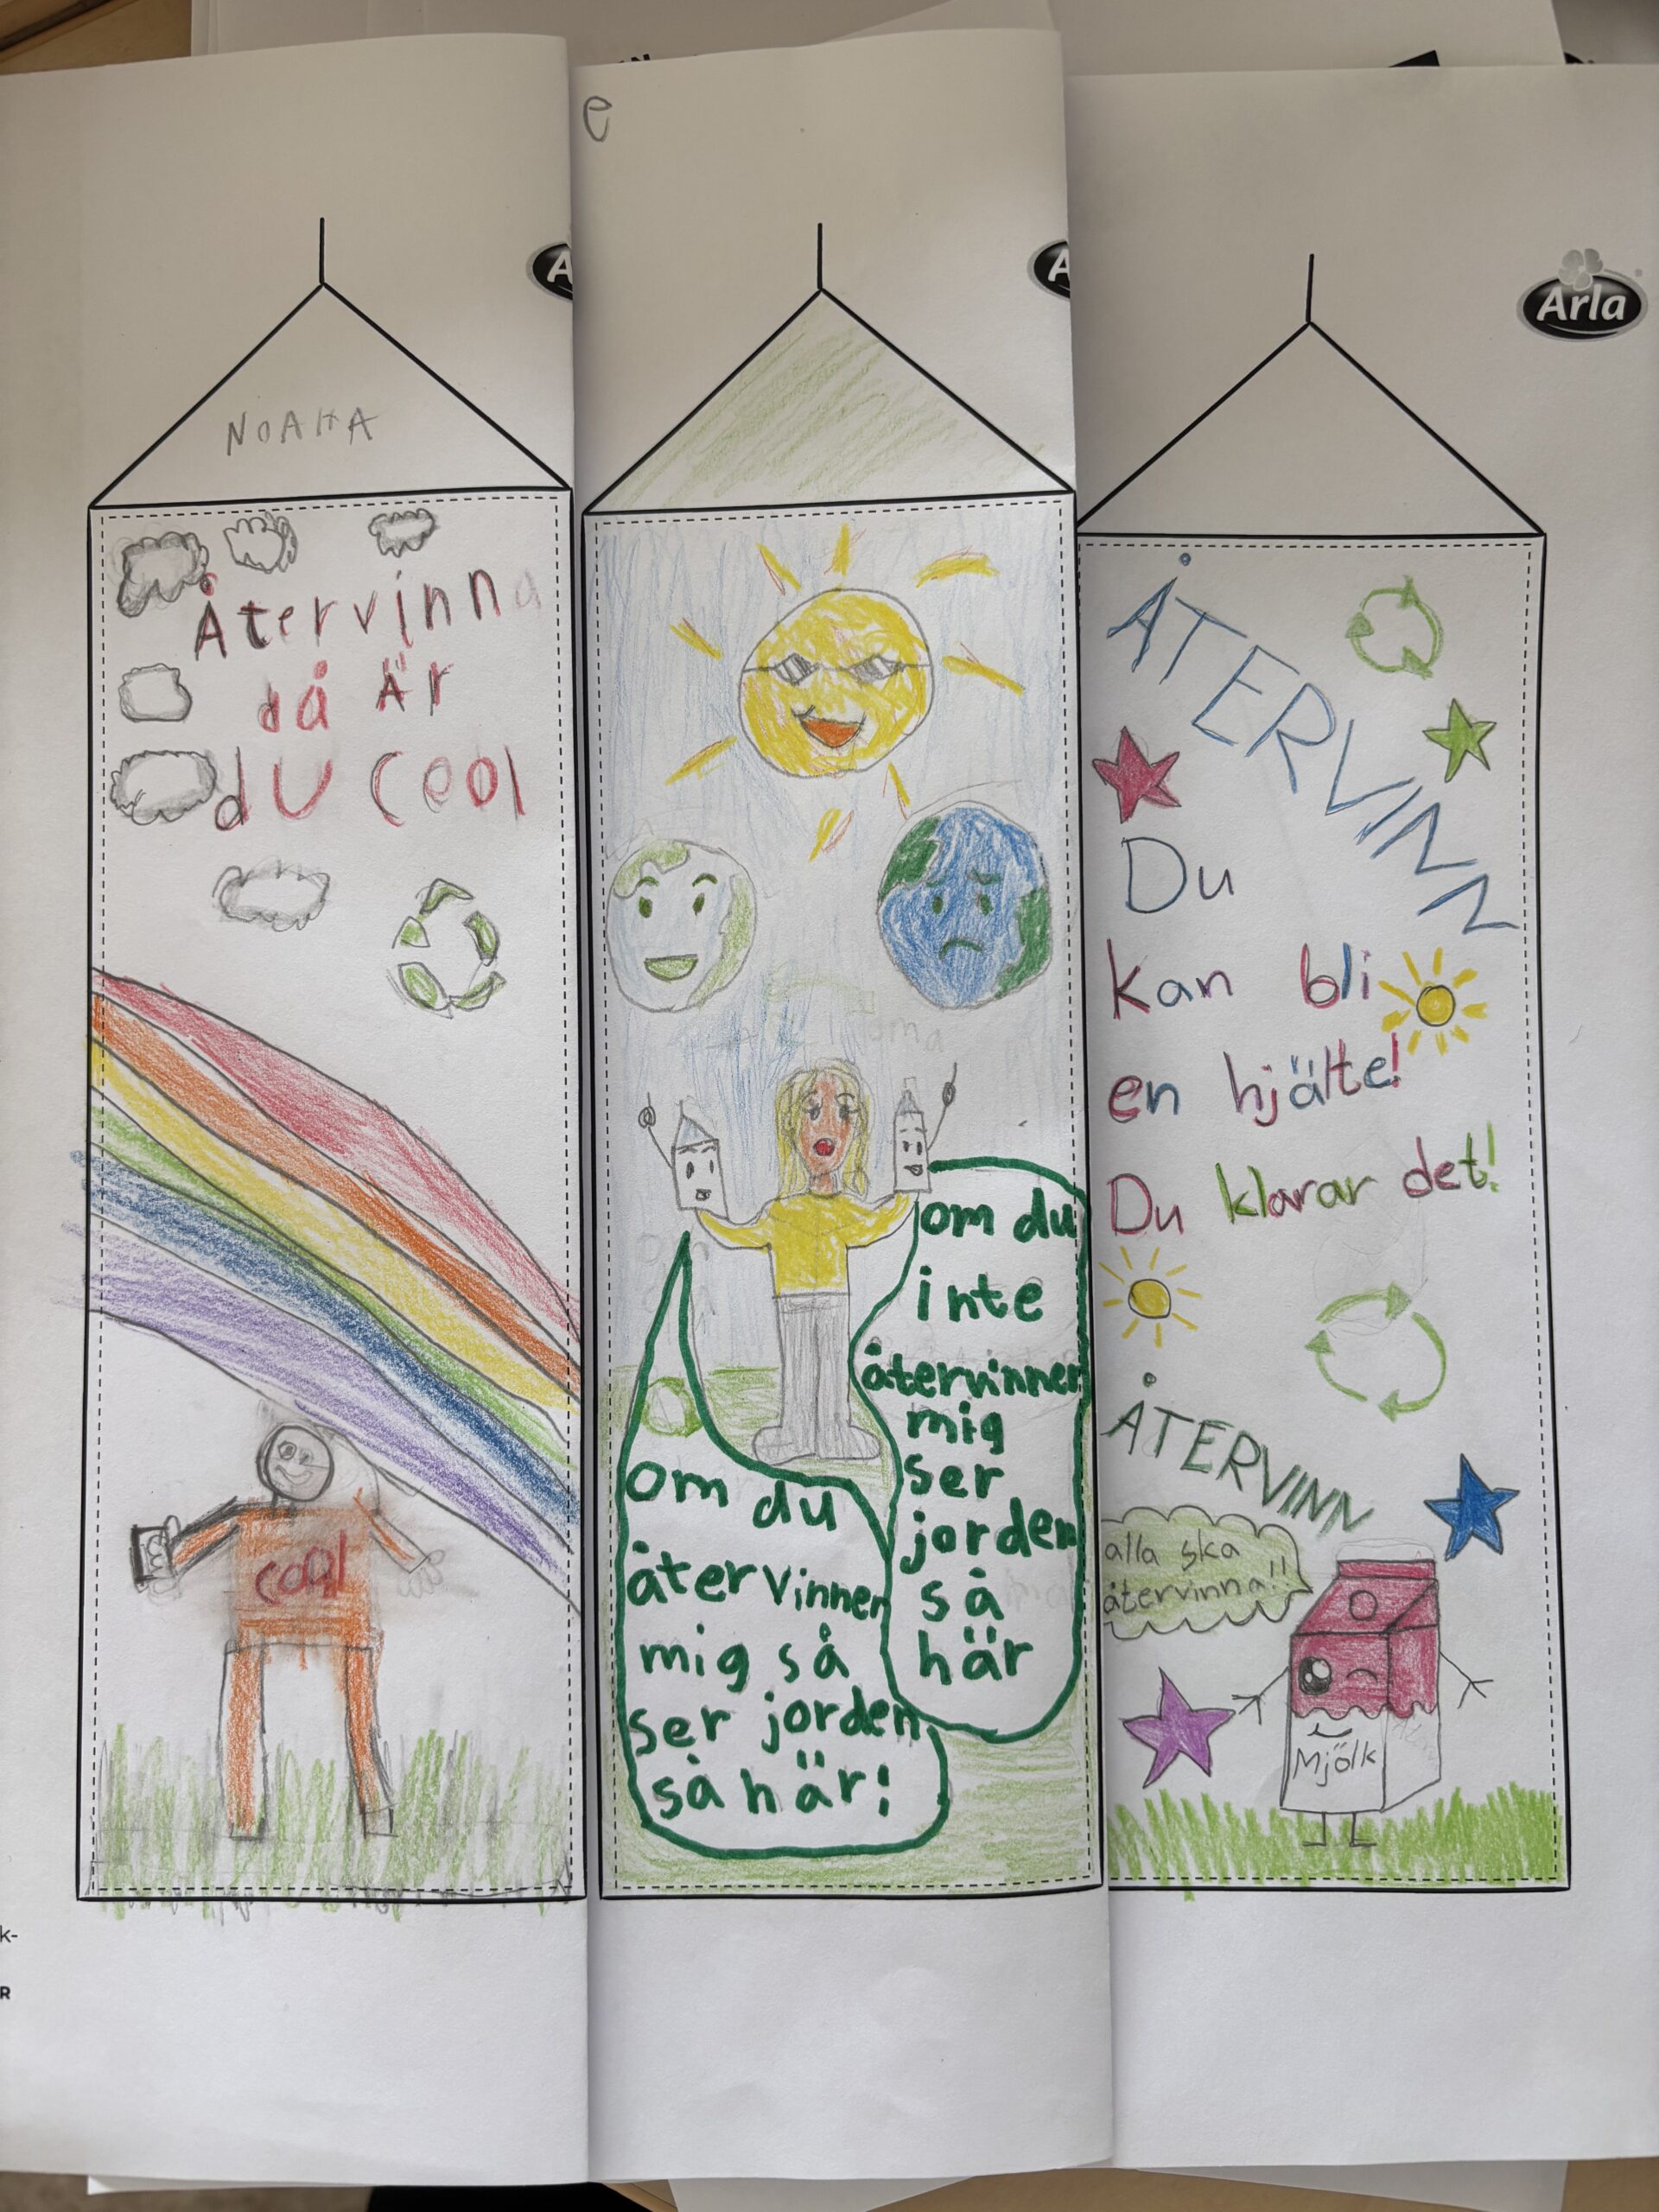 e
NOAHA
Återvinna
då Är
du cool
cool
k-
R
om du
återvinner
mig så
ser jorden
så här!
om du
inte
återvinner
mig
ser
jorden
så
här
Arla
ÅTERVINN
Du
kan bli
en hjälte!
Du klarar det!
ÅTERVINN
alla ska
återvinna!!
Mjölk